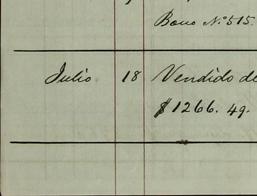 Bono Nº 515.
Julio 18 Vendido de
$1266.49.